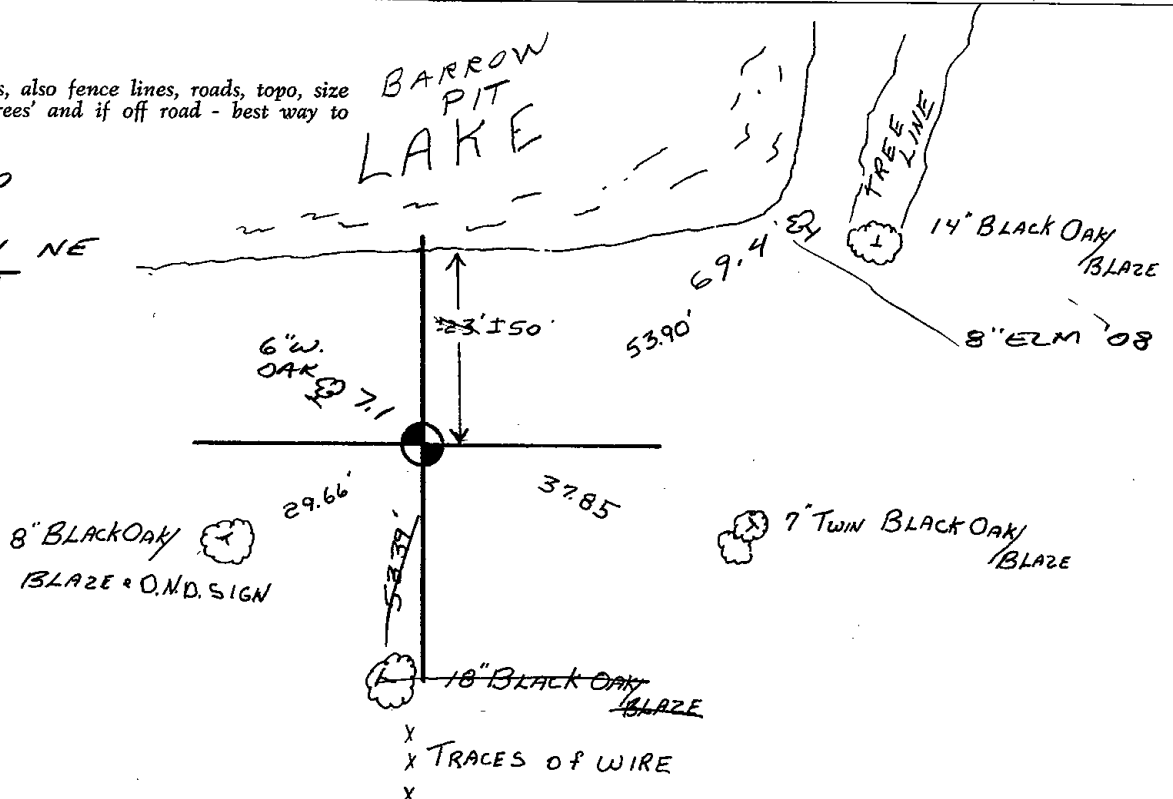 s, also fence lines, roads, topo, size
rees' and if off road - best way to
BARROW
PIT
LAKE
NE
TREE
LINE
14" BLACK OAK/
BLAZE
69.4'
53.90'
8" ELM '08
±50'
6" W.
OAK
7.1
29.66'
37.85
8" BLACK OAK/
BLAZE & O.N.D. SIGN
53.39'
7" TWIN BLACK OAK/
BLAZE
18" BLACK OAK/
BLAZE
x
x TRACES of WIRE
x